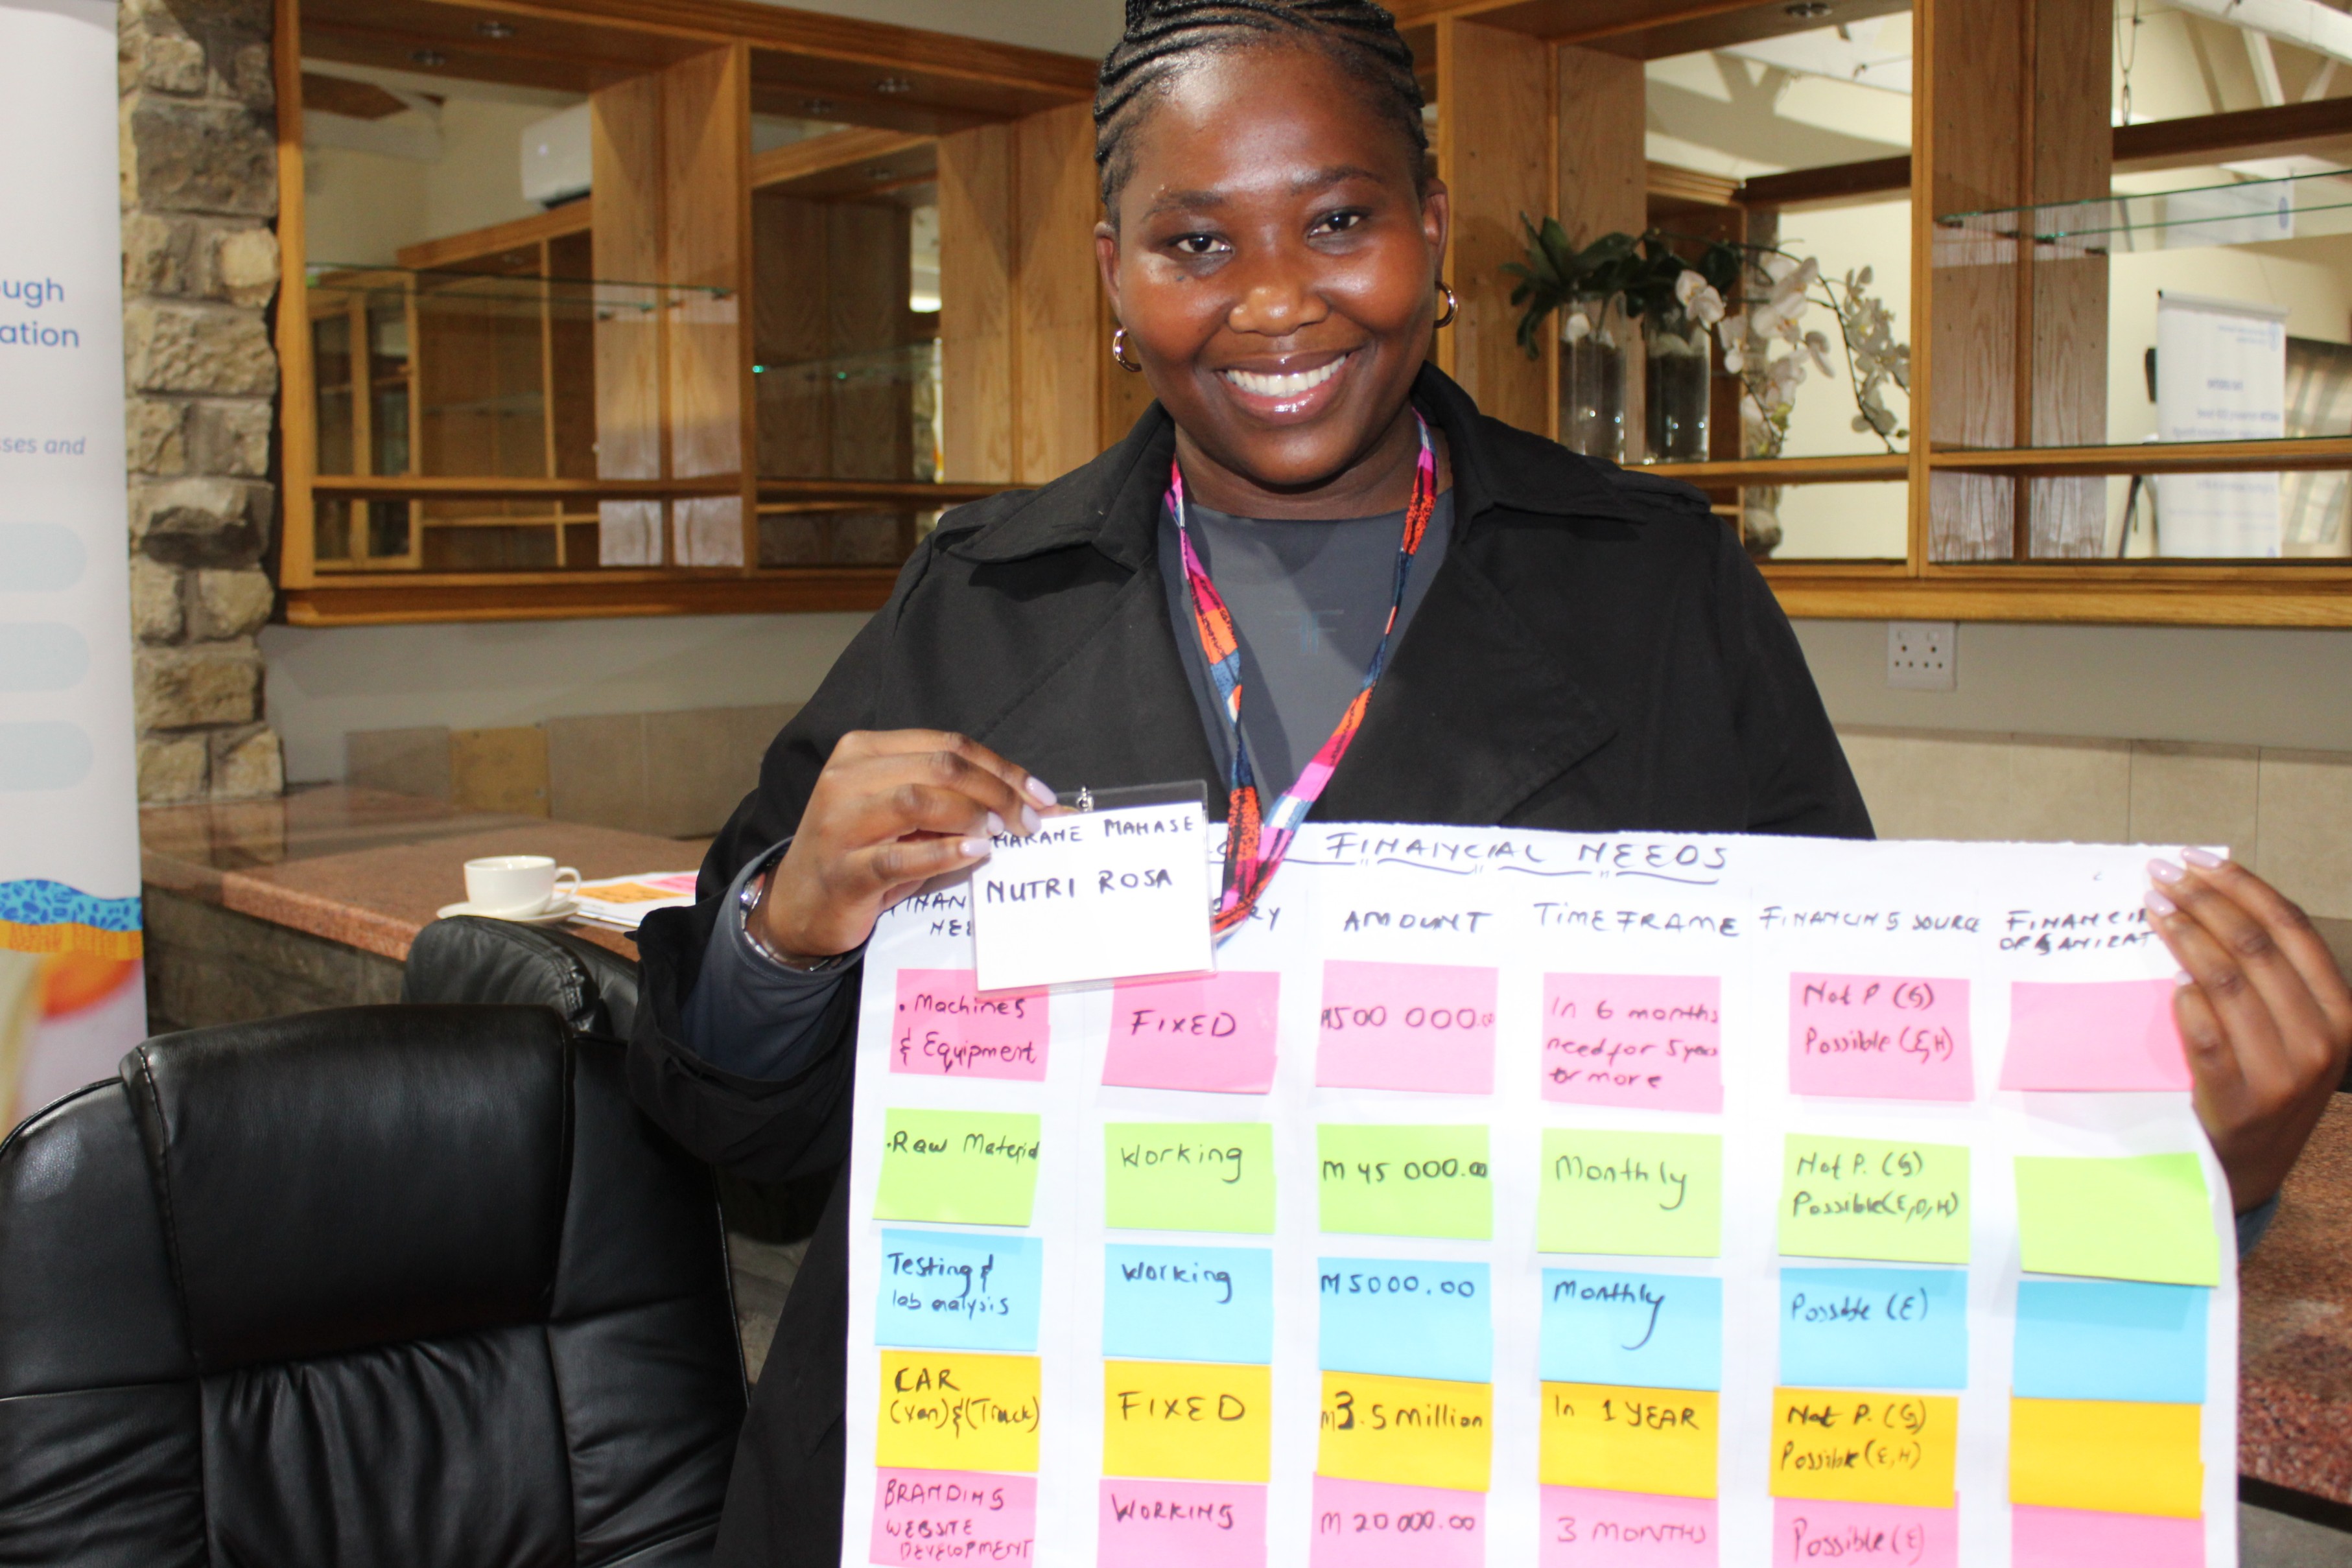 ugh
ation
sses and
MAHASE
NUTRI ROSA
FINANCIAL NEEDS
AMOUNT
TIMEFRAME
FINANCING SOURCE
• Machines
& Equipment
FIXED
M500 000.00
In 6 months
need for 5 years
or more
Not P (G)
Possible (E,H)
•Raw Material
Working
M 45 000.00
Monthly
Not P. (G)
Possible (E,D,H)
Testing &
lab analysis
Working
M5000.00
Monthly
Possible (E)
CAR
(Van) & (Truck)
FIXED
M3.5 Million
In 1 YEAR
Not P. (G)
Possible (E,H)
BRANDING
WEBSITE
DEVELOPMENT
WORKING
M 20 000.00
3 MONTHS
Possible (E)